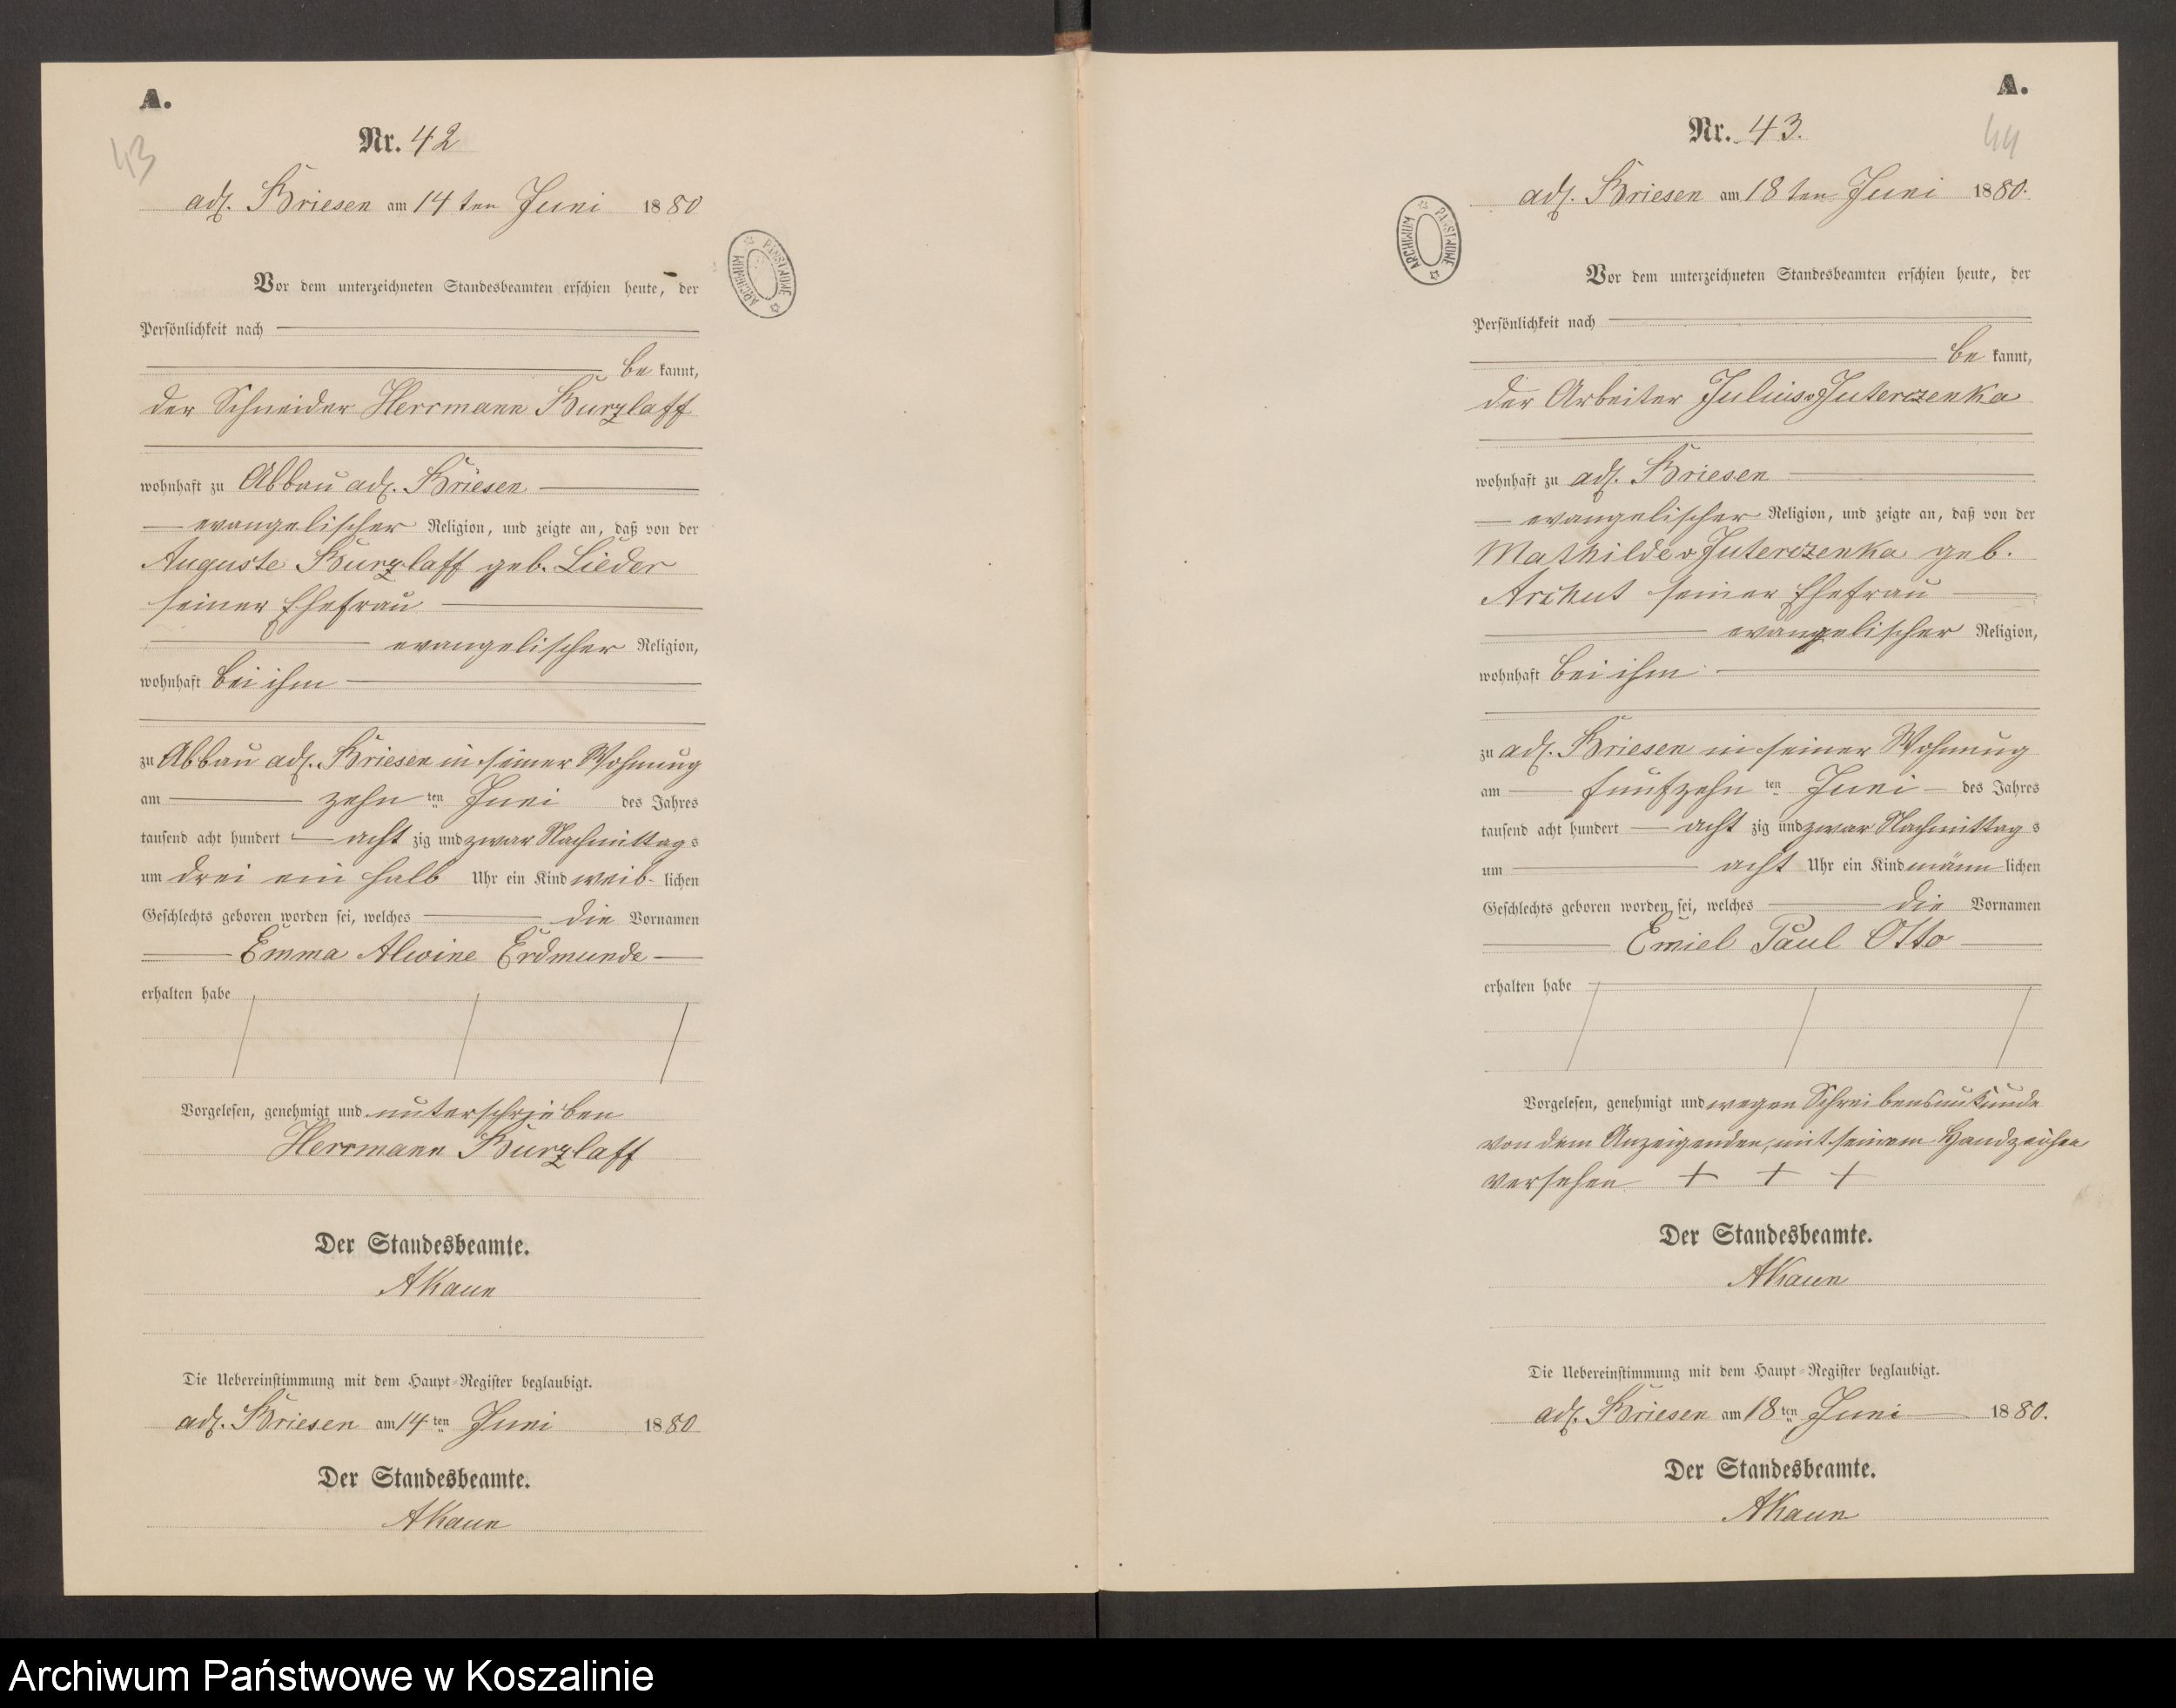 A.
43
Nr. 42
adl. Briesen am 14ten Juni 1880
Vor dem unterzeichneten Standesbeamten erschien heute, der
Persönlichkeit nach
be kannt,
der Schneider Herrmann Burzlaff
wohnhaft zu Abbau adl. Briesen
evangelischer Religion, und zeigte an, daß von der
Auguste Burzlaff geb. Lieder
seiner Ehefrau
evangelischer Religion,
wohnhaft bei ihm
zu Abbau adl. Briesen in seiner Wohnung
am zehn ten Juni des Jahres
tausend acht hundert acht zig und zwar Nachmittags
um drei ein halb Uhr ein Kind weib- lichen
Geschlechts geboren worden sei, welches die Vornamen
Emma Alwine Erdmunde
erhalten habe
Vorgelesen, genehmigt und unterschrieben
Herrmann Burzlaff
Der Standesbeamte.
AKaun
Die Uebereinstimmung mit dem Haupt-Register beglaubigt.
adl. Briesen am 14 ten Juni 1880
Der Standesbeamte.
AKaun
ARCHIWUM PAŃSTWOWE
A.
44
Nr. 43.
adl. Briesen am 18ten Juni 1880.
ARCHIWUM PAŃSTWOWE
Vor dem unterzeichneten Standesbeamten erschien heute, der
Persönlichkeit nach
be kannt,
der Arbeiter Julius v Juterczenka
wohnhaft zu adl. Briesen
evangelischer Religion, und zeigte an, daß von der
Mathilde v Juterczenka geb.
Archut seiner Ehefrau
evangelischer Religion,
wohnhaft bei ihm
zu adl. Briesen in seiner Wohnung
am fünfzehn ten Juni des Jahres
tausend acht hundert acht zig und zwar Nachmittags
um acht Uhr ein Kind männ lichen
Geschlechts geboren worden sei, welches die Vornamen
Emiel Paul Otto
erhalten habe
Vorgelesen, genehmigt und wegen Schreibensunkunde
von dem Anzeigenden, mit seinem Handzeichen
versehen + + +
Der Standesbeamte.
AKaun
Die Uebereinstimmung mit dem Haupt-Register beglaubigt.
adl. Briesen am 18 ten Juni 1880.
Der Standesbeamte.
AKaun
Archiwum Państwowe w Koszalinie